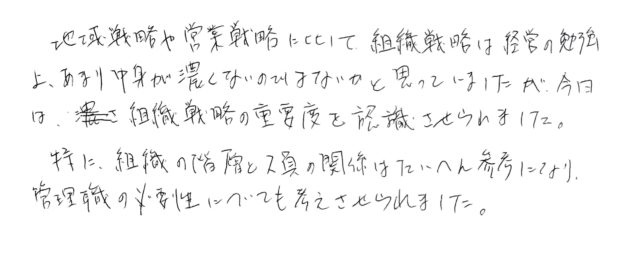 地域戦略や営業戦略に比して、組織戦略は経営の勉強
上、あまり中身が濃くないのではないかと思っていましたが、今日
は、組織戦略の重要度を認識させられました。
特に、組織の階層と人員の関係はたいへん参考になり、
管理職の必要性についても考えさせられました。